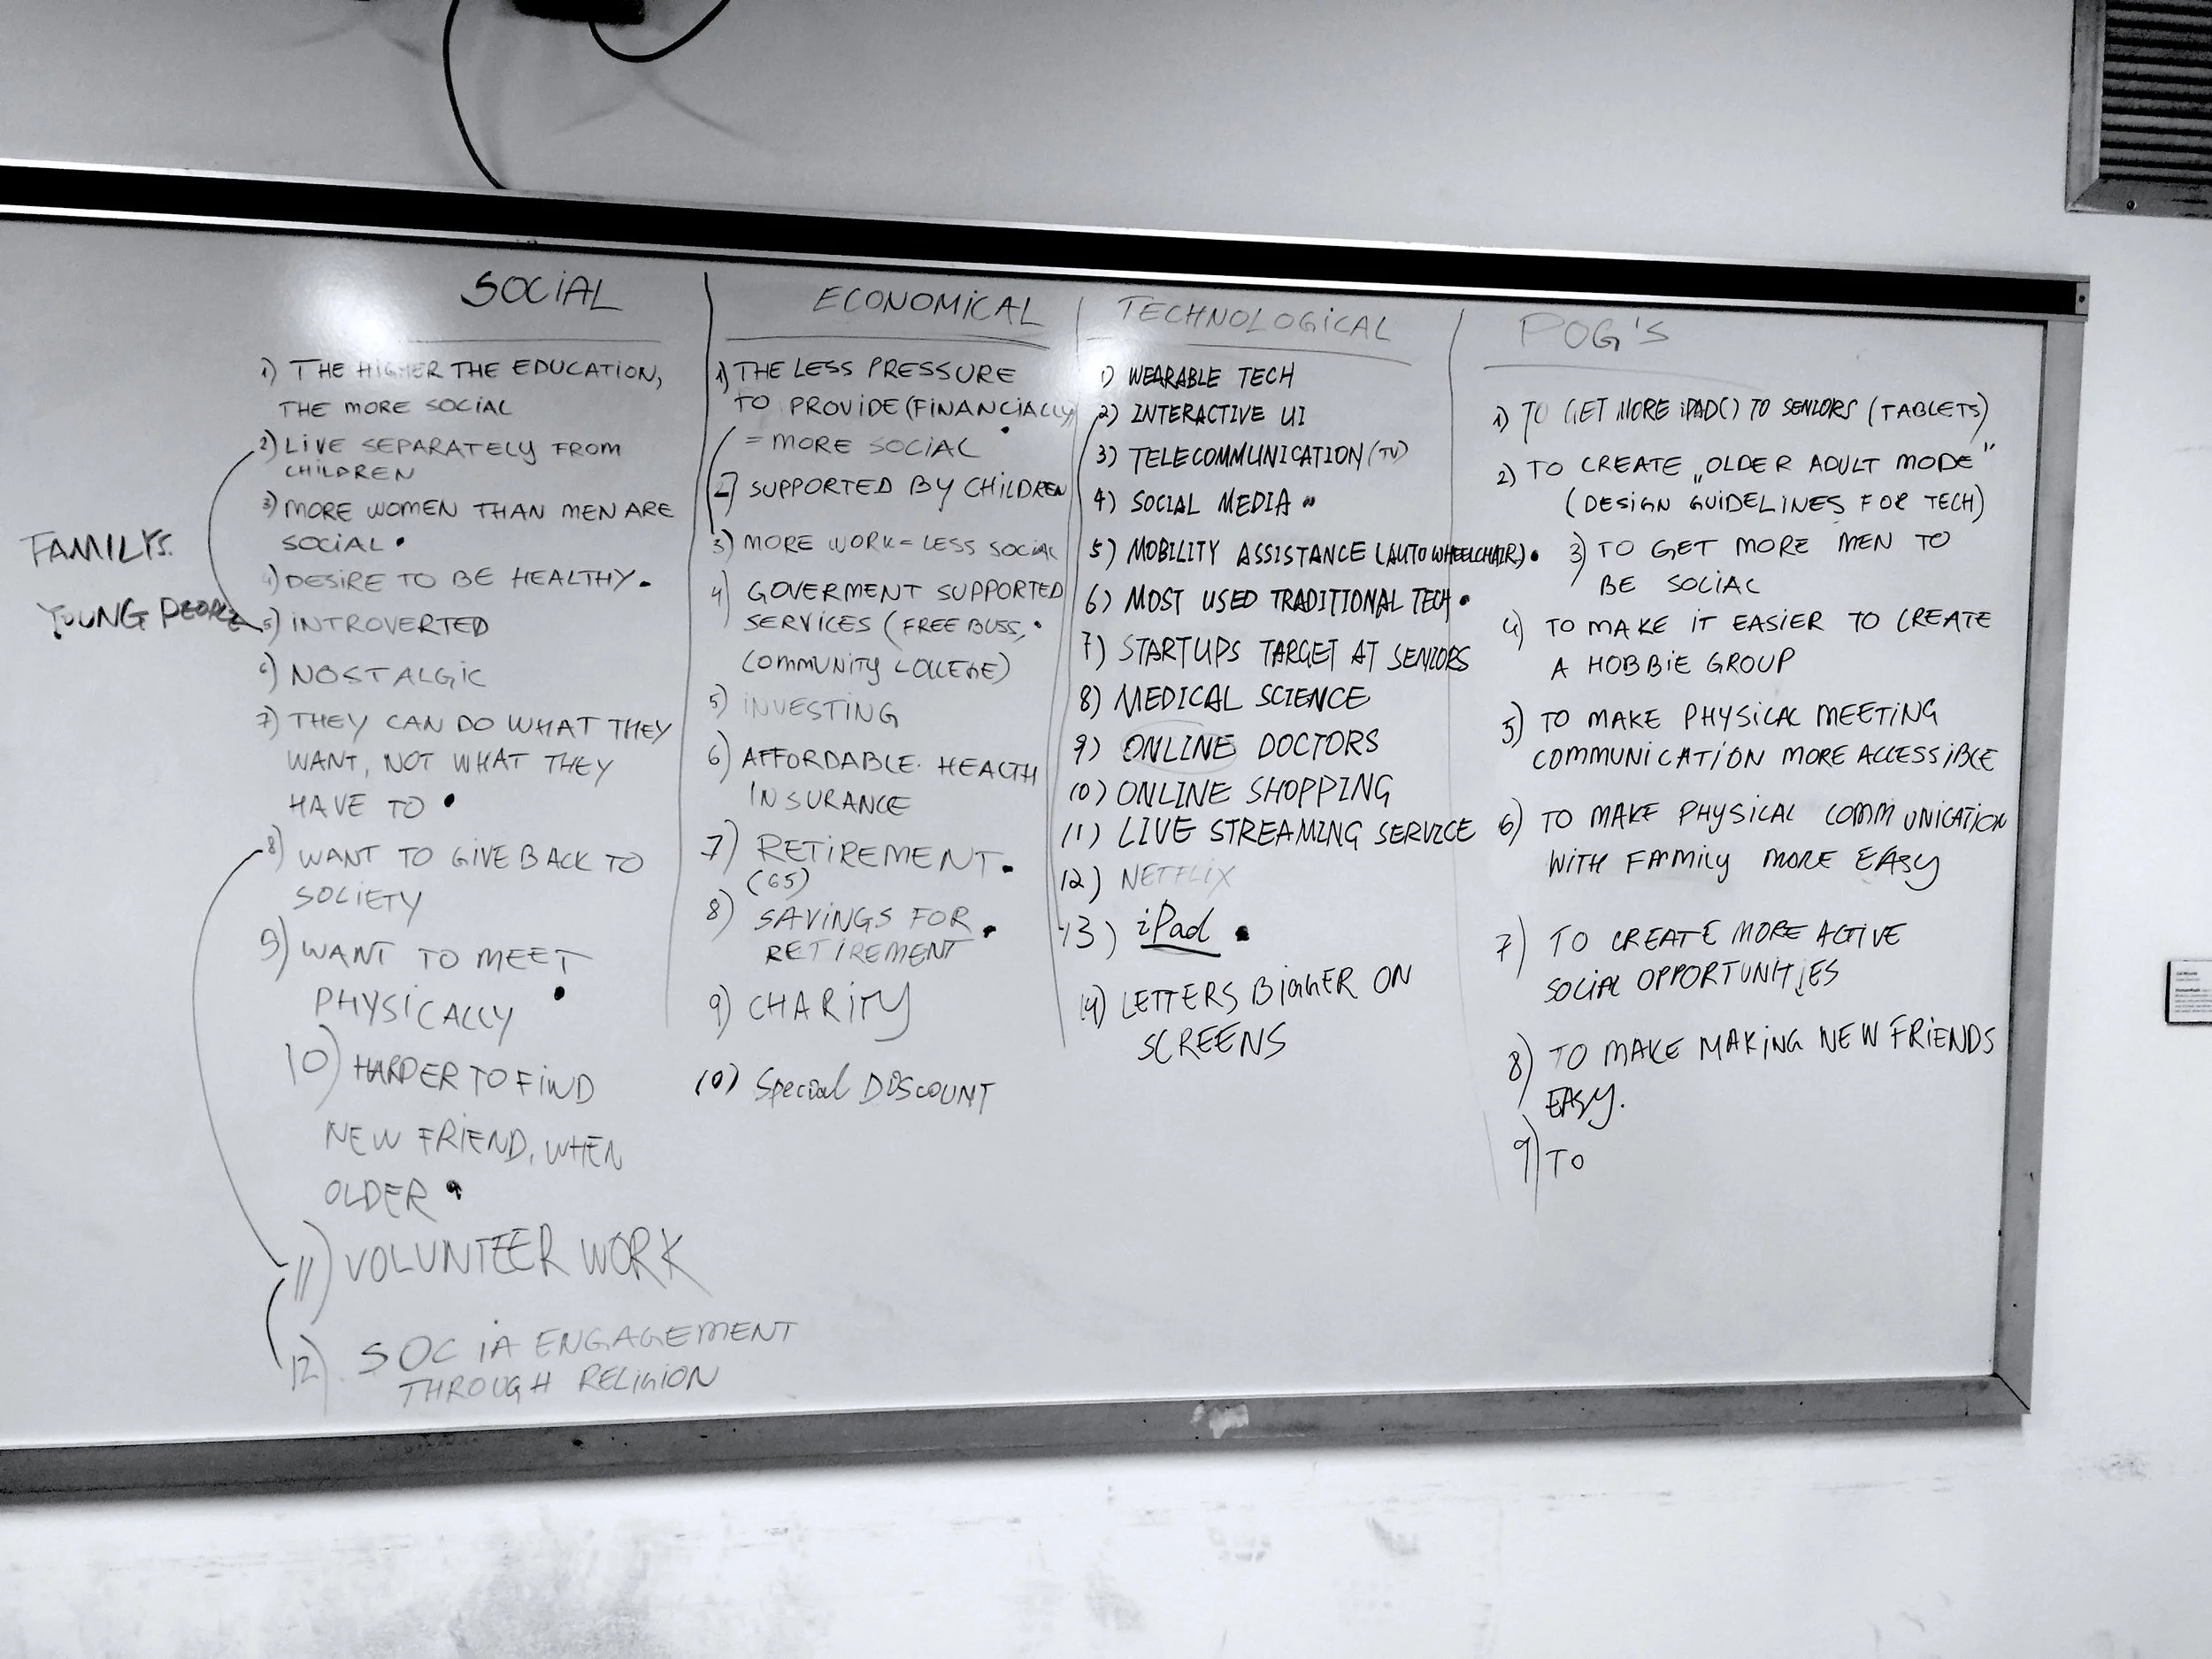 FAMILYS.
YOUNG PEOPLE
SOCIAL
1) THE HIGHER THE EDUCATION,
THE MORE SOCIAL
2) LIVE SEPARATELY FROM
CHILDREN
3) MORE WOMEN THAN MEN ARE
SOCIAL •
4) DESIRE TO BE HEALTHY •
5) INTROVERTED
6) NOSTALGIC
7) THEY CAN DO WHAT THEY
WANT, NOT WHAT THEY
HAVE TO •
8) WANT TO GIVE BACK TO
SOCIETY
9) WANT TO MEET
PHYSICALLY •
10) HARDER TO FIND
NEW FRIEND, WHEN
OLDER •
11) VOLUNTEER WORK
12) SOCIA ENGAGEMENT
THROUGH RELIGION
ECONOMICAL
1) THE LESS PRESSURE
TO PROVIDE (FINANCIALLY)
= MORE SOCIAL •
2) SUPPORTED BY CHILDREN
3) MORE WORK = LESS SOCIAL
4) GOVERMENT SUPPORTED
SERVICES (FREE BUSS, •
COMMUNITY COLLEGE)
5) INVESTING
6) AFFORDABLE HEALTH
INSURANCE
7) RETIREMENT •
(65)
8) SAVINGS FOR •
RETIREMENT
9) CHARITY
10) Special DISCOUNT
TECHNOLOGICAL
1) WEARABLE TECH
2) INTERACTIVE UI
3) TELECOMMUNICATION (TV)
4) SOCIAL MEDIA •
5) MOBILITY ASSISTANCE (AUTO WHEELCHAIR) •
6) MOST USED TRADITIONAL TECH •
7) STARTUPS TARGET AT SENIORS
8) MEDICAL SCIENCE
9) ONLINE DOCTORS
10) ONLINE SHOPPING
11) LIVE STREAMING SERVICE
12) NETFLIX
13) iPad •
14) LETTERS BIGGER ON
SCREENS
POG'S
1) TO GET MORE iPAD() TO SENIORS (TABLETS)
2) TO CREATE „OLDER ADULT MODE"
(DESIGN GUIDELINES FOR TECH)
3) TO GET MORE MEN TO
BE SOCIAL
4) TO MAKE IT EASIER TO CREATE
A HOBBIE GROUP
5) TO MAKE PHYSICAL MEETING
COMMUNICATION MORE ACCESSIBLE
6) TO MAKE PHYSICAL COMMUNICATION
WITH FAMILY MORE EASY
7) TO CREATE MORE ACTIVE
SOCIAL OPPORTUNITIES
8) TO MAKE MAKING NEW FRIENDS
EASY.
9) TO